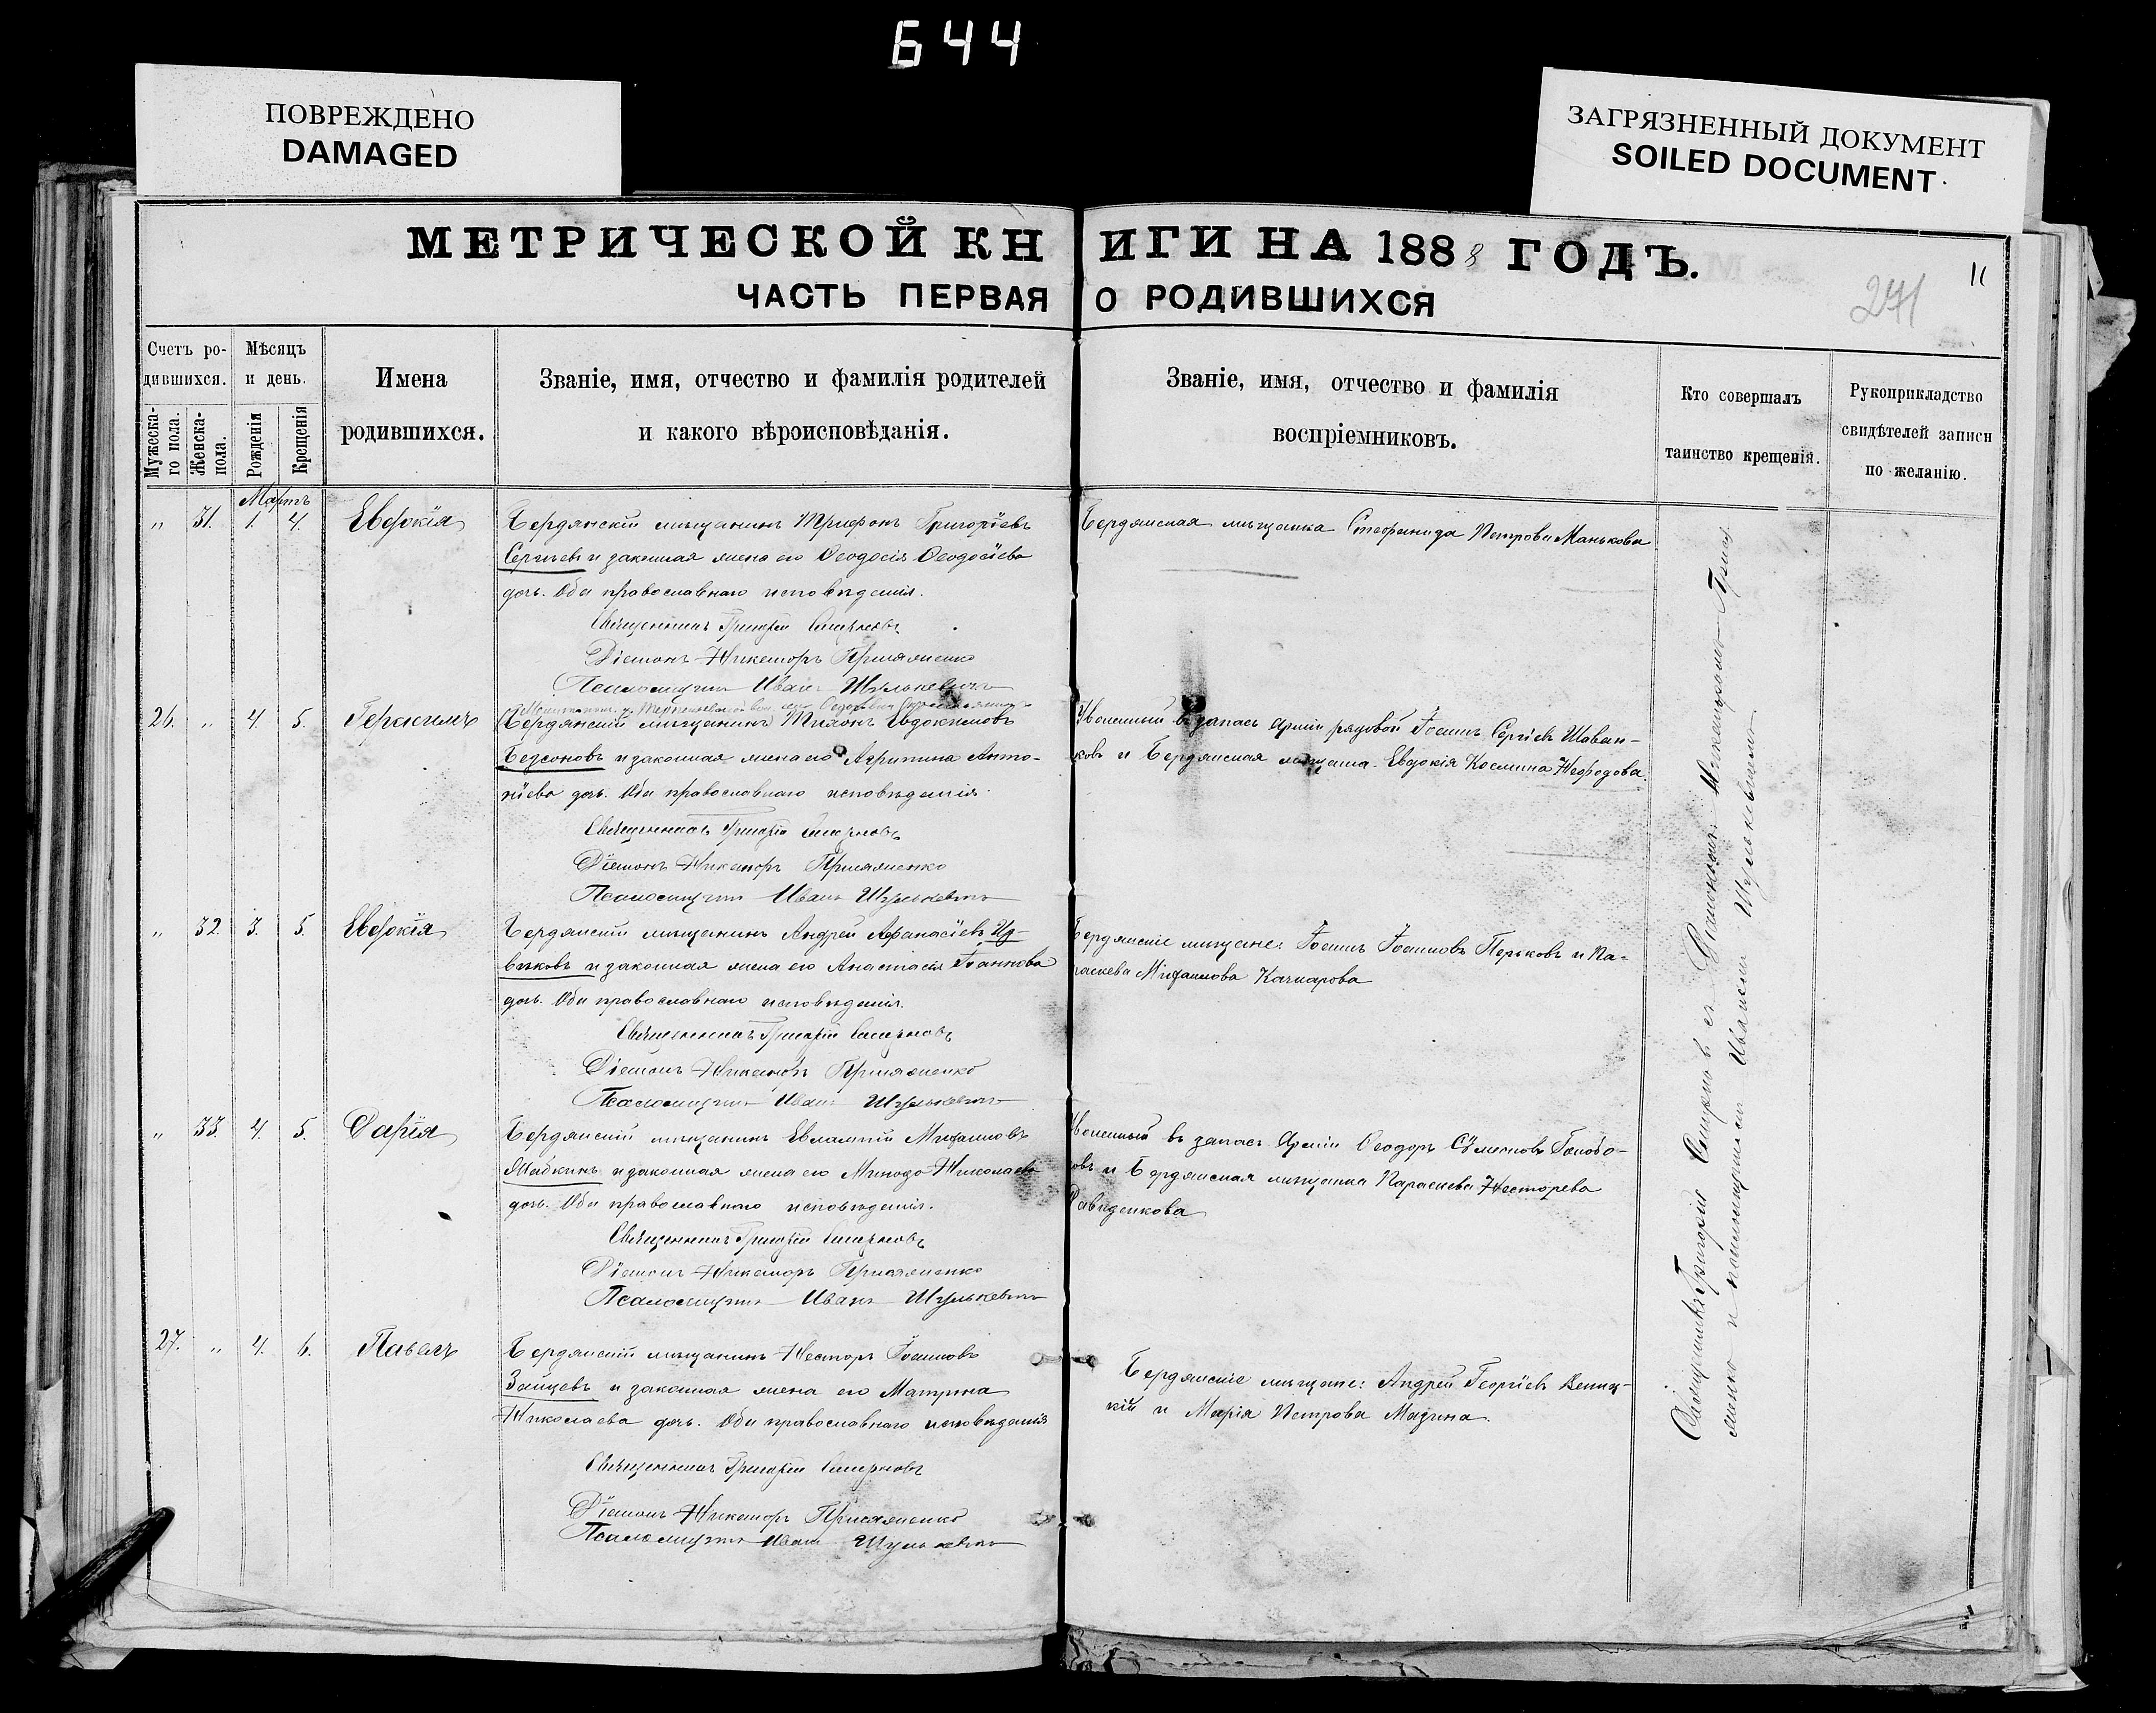 644
ПОВРЕЖДЕНО
DAMAGED
ЗАГРЯЗНЕННЫЙ ДОКУМЕНТ
SOILED DOCUMENT
МЕТРИЧЕСКОЙ КНИГИ НА 1888 ГОДЪ.
ЧАСТЬ ПЕРВАЯ О РОДИВШИХСЯ
11
271
Счетъ родившихся.
Мужескаго пола.
Женска- пола.
Мѣсяцъ и день.
Рожденія
Крещенія
Имена родившихся.
Званіе, имя, отчество и фамилія родителей
и какого вѣроисповѣданія.
Званіе, имя, отчество и фамилія
воспріемниковъ.
Кто совершалъ
таинство крещенія.
Рукоприкладство
свидѣтелей записи
по желанію.
Мартъ
„ 31. 1. 4. Евдокія
Бердянскій мѣщанинъ Трифонъ Григоріевъ
Сергѣевъ и законная жена его Ѳеодосія Ѳеодосіева
дочь. Оба православнаго исповѣданія.
Священникъ Григорій Смирновъ
Діаконъ Никаноръ Присяженко
Псаломщикъ Иванъ Шулькевичъ
Бердянская мѣщанка Стефанида Петрова Манькова
26. „ 4. 5. Герасимъ
(Бердянскій мѣщанинъ) Тихонъ Евдокимовъ
Безсоновъ и законная жена его Агрипина Анто-
ніева дочь. Оба православнаго исповѣданія.
Священникъ Григорій Смирновъ
Діаконъ Никаноръ Присяженко
Псаломщикъ Иванъ Шулькевичъ
Уволенный въ запасъ Арміи рядовой Іоаннъ Сергіевъ Шаван-
ковъ и Бердянская мѣщанка Евдокія Космина Нефодова
„ 32. 3. 5. Евдокія
Бердянскій мѣщанинъ Андрей Афанасіевъ Из-
вѣковъ и законная жена его Анастасія Іоаннова
дочь. Оба православнаго исповѣданія.
Священникъ Григорій Смирновъ
Діаконъ Никаноръ Присяженко
Псаломщикъ Иванъ Шулькевичъ
Бердянскіе мѣщане: Іоаннъ Іоанновъ Перьковъ и Па-
раскева Михаилова Качкарова
„ 33. 4. 5. Дарія
Бердянскій мѣщанинъ Евлампій Михаиловъ
Жабкинъ и законная жена его Минодо Николаева
дочь. Оба православнаго исповѣданія.
Священникъ Григорій Смирновъ
Діаконъ Никаноръ Присяженко
Псаломщикъ Иванъ Шулькевичъ
Уволенный въ запасъ Арміи Ѳеодоръ Сѵмеоновъ
и Бердянская мѣщанка Параскева Несторева
Давиденкова
27. „ 4. 6. Павелъ
Бердянскій мѣщанинъ Несторъ Іоанновъ
Зайцевъ и законная жена его Матрина
Николаева дочь. Оба православнаго исповѣданія
Священникъ Григорій Смирновъ
Діаконъ Никаноръ Присяженко
Псаломщикъ Иванъ Шулькевичъ
Бердянскіе мѣщане: Андрей Георгіевъ Вениц-
кій и Марія Петрова Мазина.
Священникъ Григорій Смирновъ съ Діакономъ Никаноромъ Прися-
женко и псаломщикомъ Иваномъ Шулькевичемъ